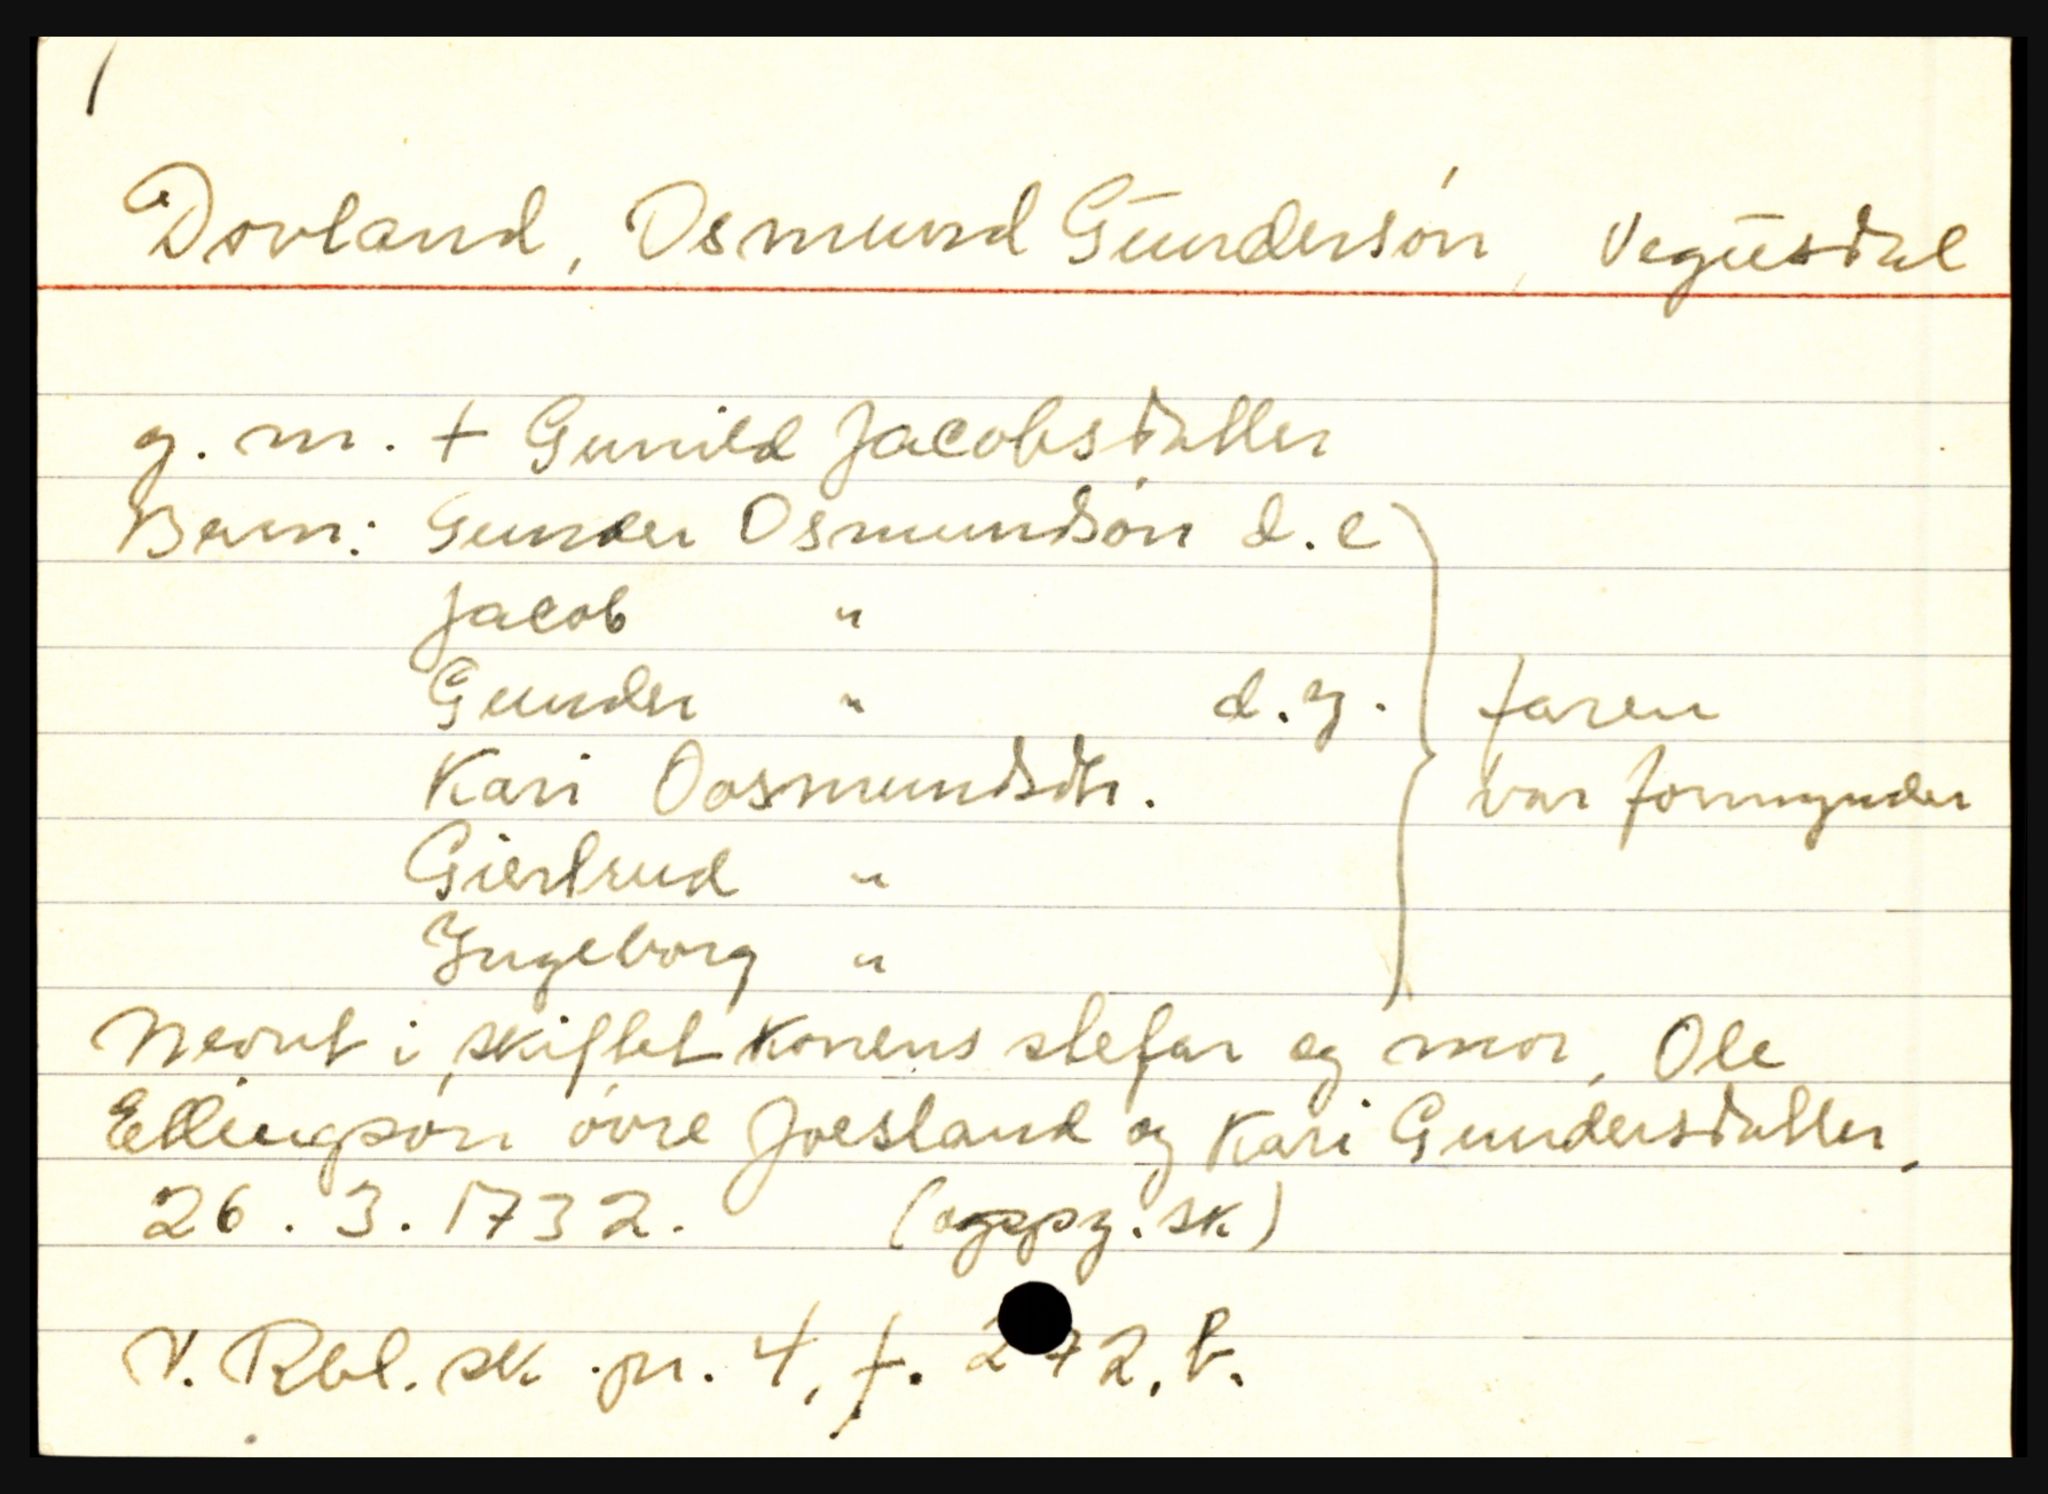 Dovland, Osmund Gundersön, Vegusdal
g. m. + Gunild Jacobsdatter
Barn: Gunder Osmundsön d. e
Jacob "
Gunder " d. y.
Kari Oosmundsdtr.
Giertrud "
Ingeborg "
faren
var formynder
Nevnt i skiftet konens stefar og mor, Ole
Ellingsön övre Joesland og Kari Gundersdatter.
26. 3. 1732. (oppg. sk)
V. Rbl. sk. pr. 4, f. 272, b.